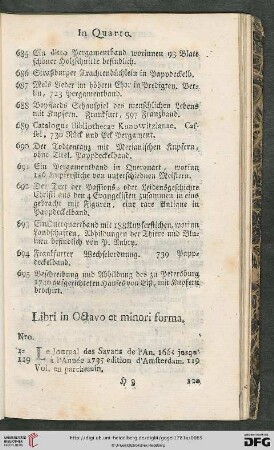 In Quarto.
685 Ein ditto Pergamentband worinnen 93 Blatt
schöner Holzschnitte befindlich.
686 Straßburger Trachtenbüchlein in Pappdeckelb.
687 Lieder im höhern Chor in Predigten, Ber-
lin, 723 Pergamentband.
688 Boysards Schauspiel des menschlichen Lebens
mit Kupfern. Frankfurt, 597 Franzband.
689 Catalogus Bibliothecae Cas-
sel, 730 Stück und Eck Pergament.
690 Der Todtentanz mit Merianischen Kupfern,
ohne Titel. Pappdeckelband.
691 Ein Pergamentband in Queroquart, worinn
Kupferstiche von unterschiednen Meistern.
692 Der Text der Passions- oder Leidensgeschichte
Christi aus den 4 Evangelisten zusammen in eins
gebracht mit Figuren, eine rare Edition in
Pappdeckelband.
693 Ein Quartband mit Kupferstichen, worinn
Landschaften, Abbildungen der Thiere und Blu-
men befindlich von P. Aubry.
694 Frankfurter Wechselordnung. 739 Papp-
deckelband.
695 Beschreibung und Abbildung des zu Petersburg
1740 aufgerichteten Hauses von Eiß, mit Kupfern,
brochirt.
Libri in Octavo et minori forma.
Nro.
1-
119 Le Journal des Savans de l'An. 1665 jusqu'
à l'Année 1735 edition d'Amsterdam. 119
Vol. en parchemin.
120